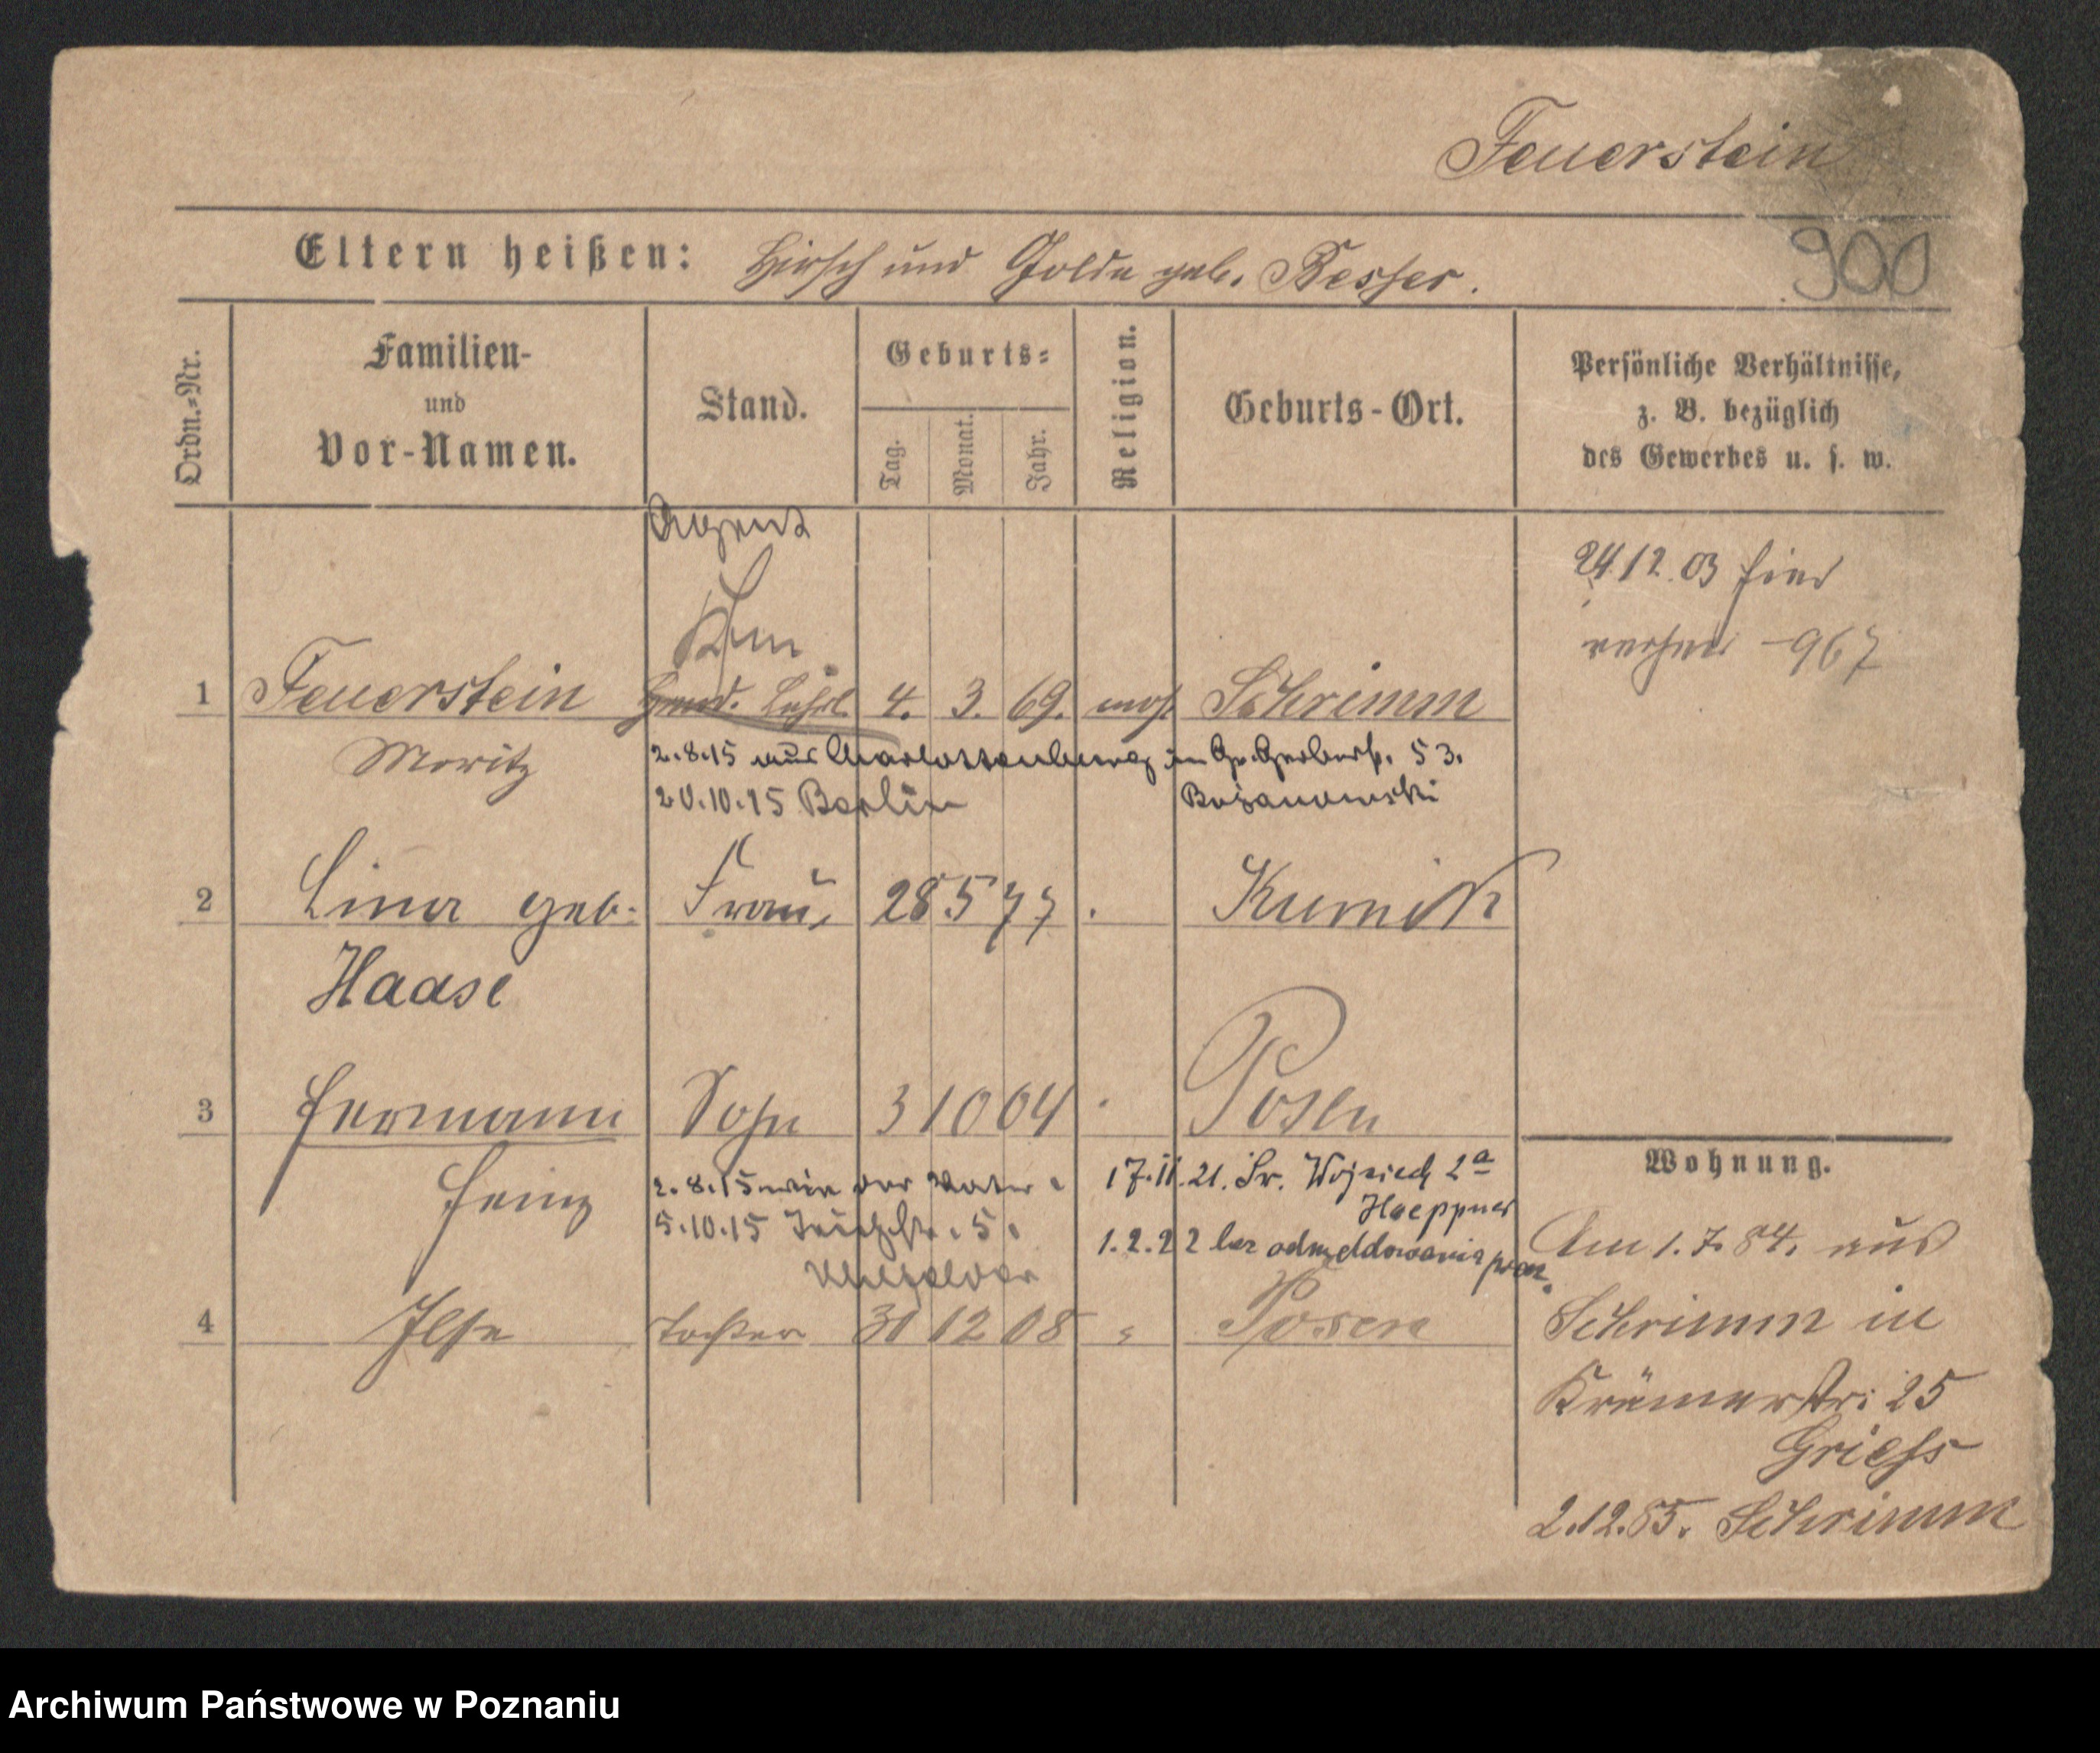 Feuerstein
Eltern heißen: Hirsch und Golda geb. Besser.
900
Ordn.-Nr.
Familien-
und
Vor-Namen.
Stand.
Geburts-
Tag. Monat. Jahr.
Religion.
Geburts-Ort.
Persönliche Verhältnisse,
z. B. bezüglich
des Gewerbes u. s. w.
Agent
Kfm
24.12.03 hier
967
1 Feuerstein Hand. Lehrl. 4. 3. 69. mos. Schrimm
Moritz
2.8.15 aus Charlottenburg in Gr. Gerberst. 53.
20.10.15 Berlin
2 Lina geb. Frau, 28 5 77 Kurnik
Haase
3 Hermann Sohn 3 10 04 Posen
Heinz
2.8.15 wie der Vater.
5.10.15 5.
17.11.21. Św. Wojciech 2a
Hoeppner
1.2.22 bez odmeldowania
4 Ilse Tochter 31 12 08 Posen
Wohnung.
Am 1.7.84. aus
Schrimm in
Krämerstr: 25
Griess
2.12.85. Schrimm
Archiwum Państwowe w Poznaniu